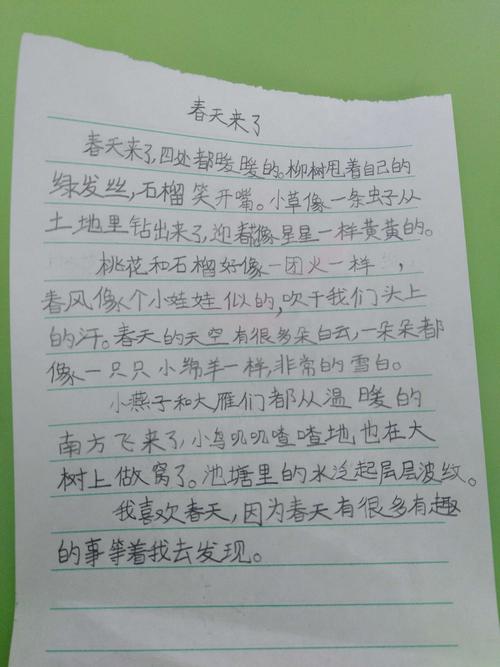 春天来了
春天来了,四处都暖暖的。柳树甩着自己的
绿发丝,石榴笑开嘴。小草像一条虫子从
土地里钻出来了,迎春像星星一样黄黄的。
桃花和石榴好像一团火一样,
春风像个小娃娃似的,吹干我们头上
的汗。春天的天空有很多朵白云,一朵朵都
像一只只小绵羊一样,非常的雪白。
小燕子和大雁们都从温暖的
南方飞来了,小鸟叽叽喳喳地也在大
树上做窝了。池塘里的水泛起层层波纹。
我喜欢春天,因为春天有很多有趣
的事等着我去发现。